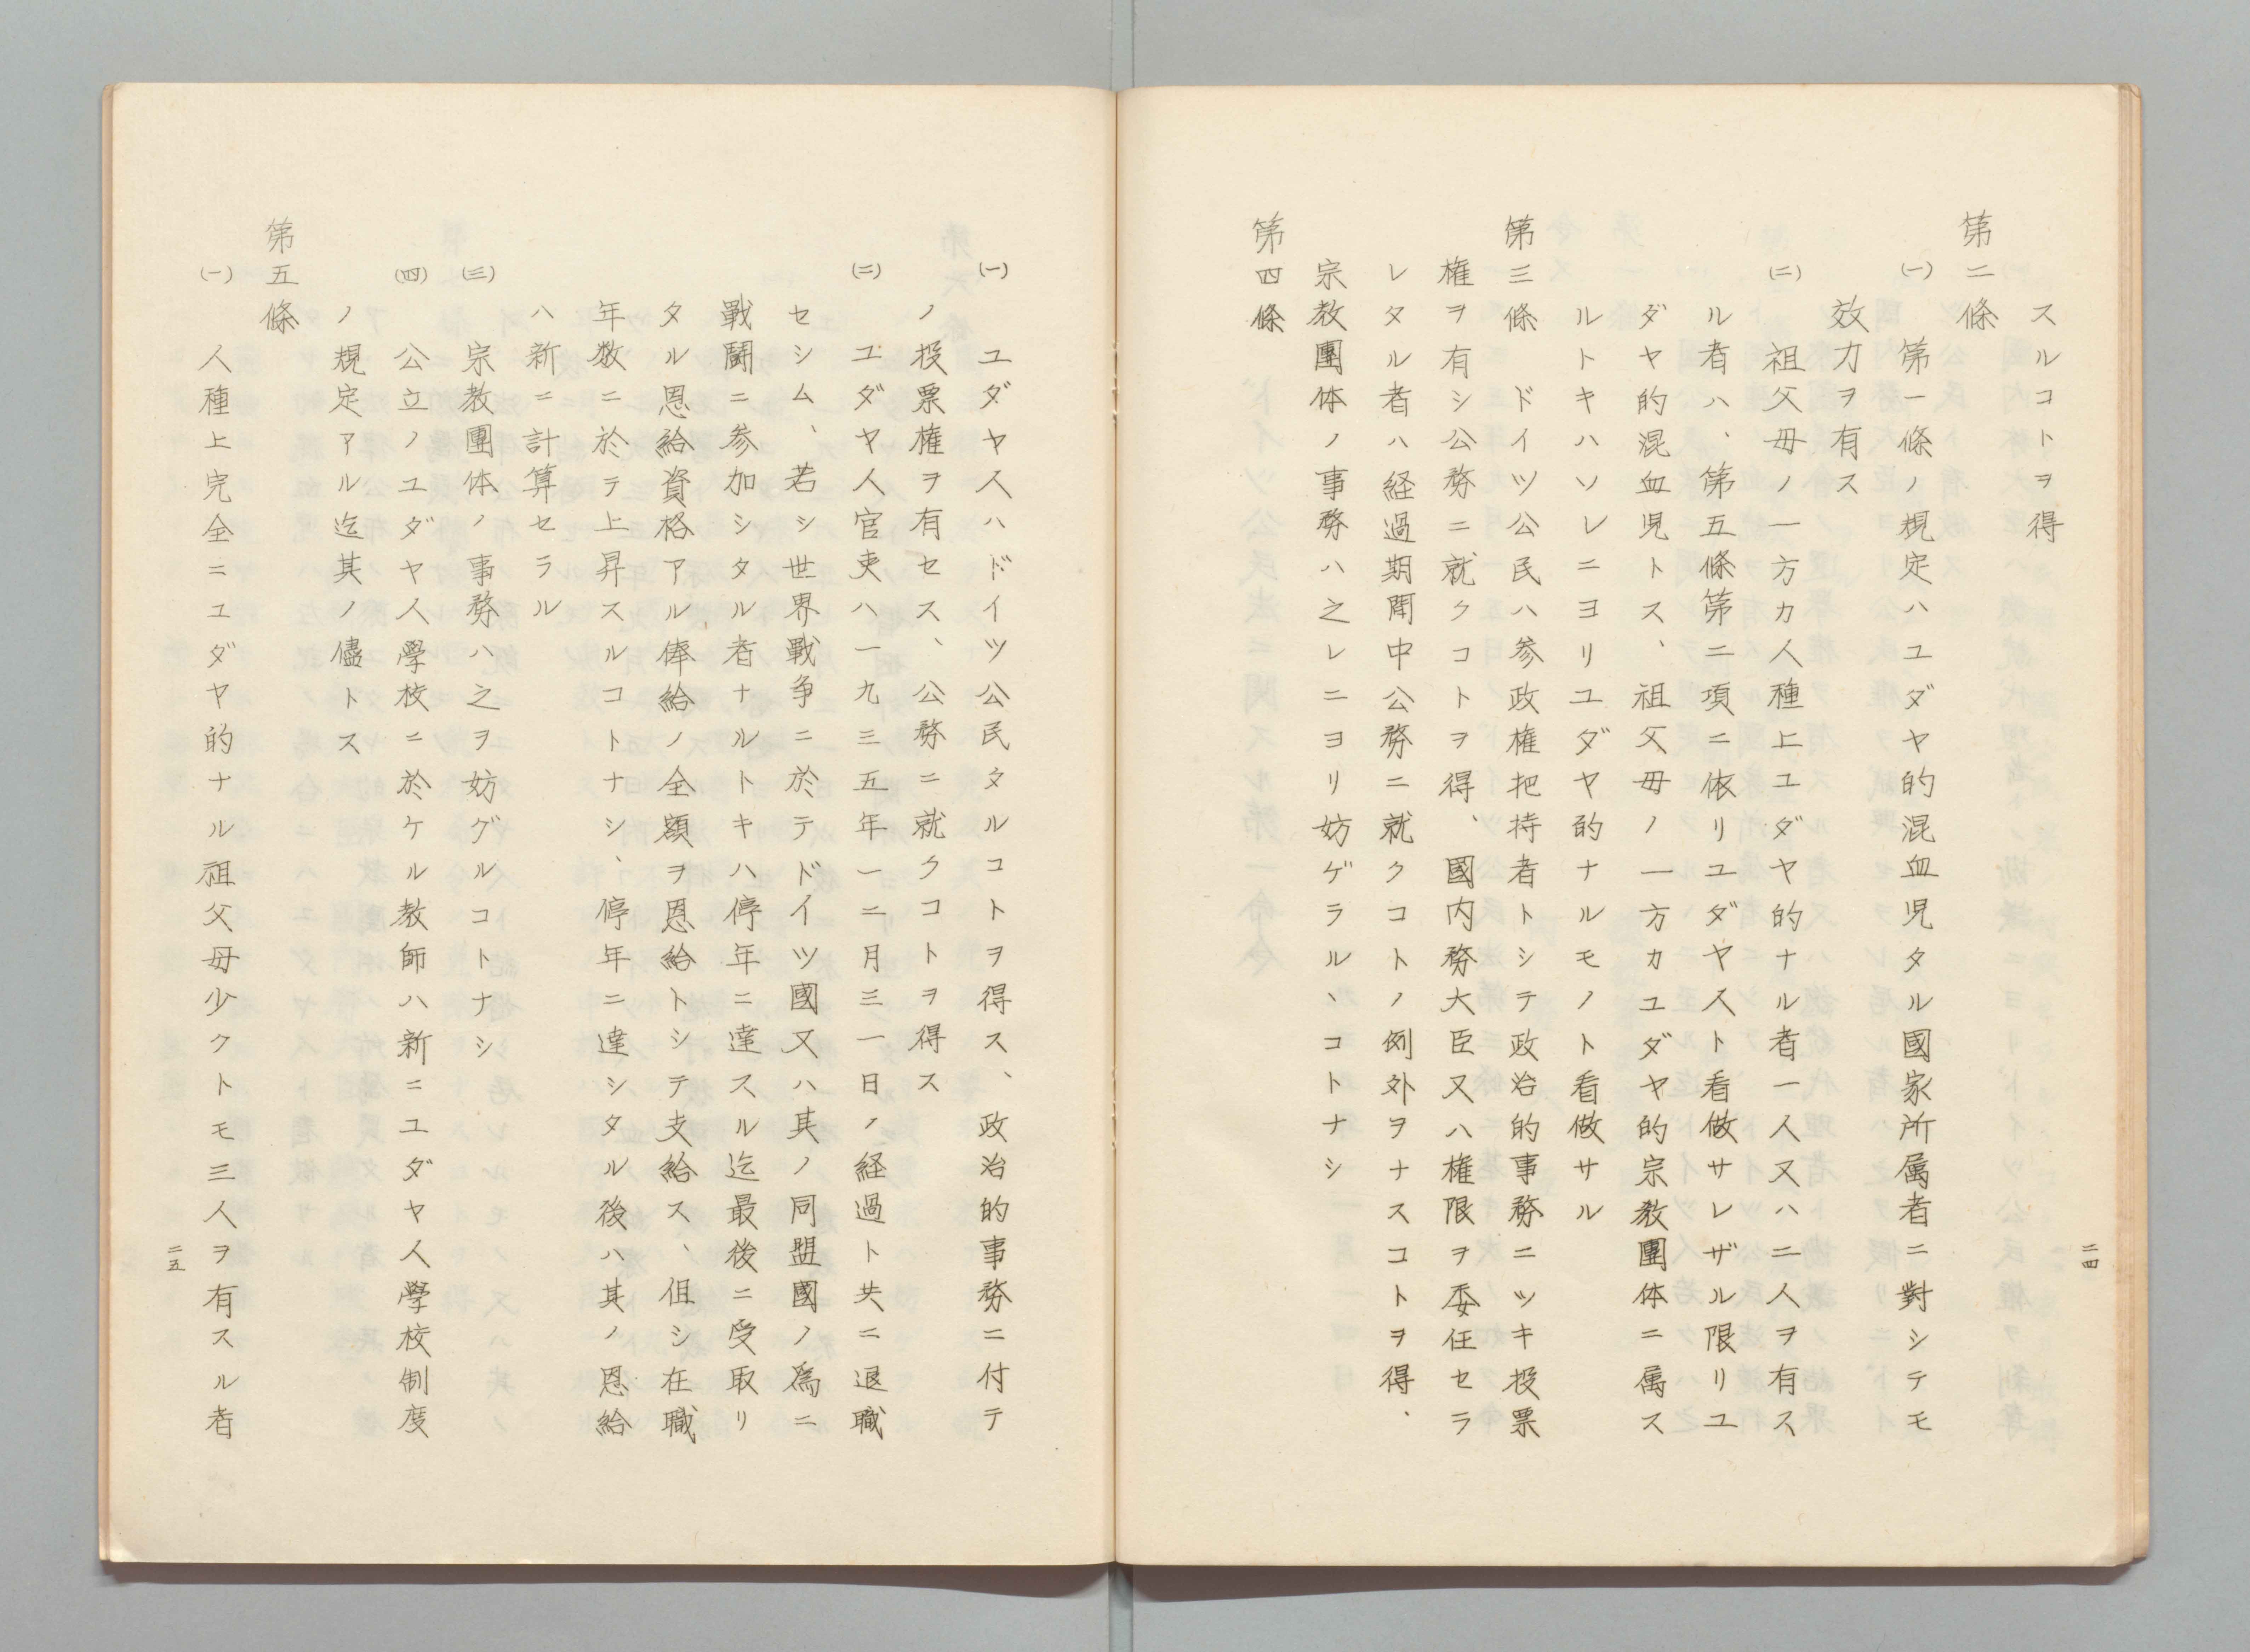 スルコトヲ得
第二條
(一)　第一條ノ規定ハユダヤ的混血児タル國家所属者ニ對シテモ
効力ヲ有ス
(二)　祖父母ノ一方カ人種上ユダヤ的ナル者一人又ハ二人ヲ有ス
ル者ハ、第五條第二項ニ依リユダヤ人ト看做サレザル限リユ
ダヤ的混血児トス、祖父母ノ一方カユダヤ的宗教團体ニ属ス
ルトキハソレニヨリユダヤ的ナルモノト看做サル
第三條　ドイツ公民ハ参政権把持者トシテ政治的事務ニツキ投票
権ヲ有シ公務ニ就クコトヲ得、國内務大臣又ハ権限ヲ委任セラ
レタル者ハ経過期間中公務ニ就クコトノ例外ヲナスコトヲ得、
宗教團体ノ事務ハ之レニヨリ妨ゲラルヽコトナシ
第四條
二四
(一)　ユダヤ人ハドイツ公民タルコトヲ得ス、政治的事務ニ付テ
ノ投票権ヲ有セス、公務ニ就クコトヲ得ス
(二)　ユダヤ人官吏ハ一九三五年一二月三一日ノ経過ト共ニ退職
セシム、若シ世界戰争ニ於テドイツ國又ハ其ノ同盟國ノ爲ニ
戰闘ニ参加シタル者ナルトキハ停年ニ達スル迄最後ニ受取リ
タル恩給資格アル俸給ノ全額ヲ恩給トシテ支給ス、但シ在職
年数ニ於テ上昇スルコトナシ、停年ニ達シタル後ハ其ノ恩給
ハ新ニ計算セラル
(三)　宗教團体ノ事務ハ之ヲ妨グルコトナシ
(四)　公立ノユダヤ人學校ニ於ケル教師ハ新ニユダヤ人學校制度
ノ規定アル迄其ノ儘トス
第五條
(一)　人種上完全ニユダヤ的ナル祖父母少クトモ三人ヲ有スル者
二五